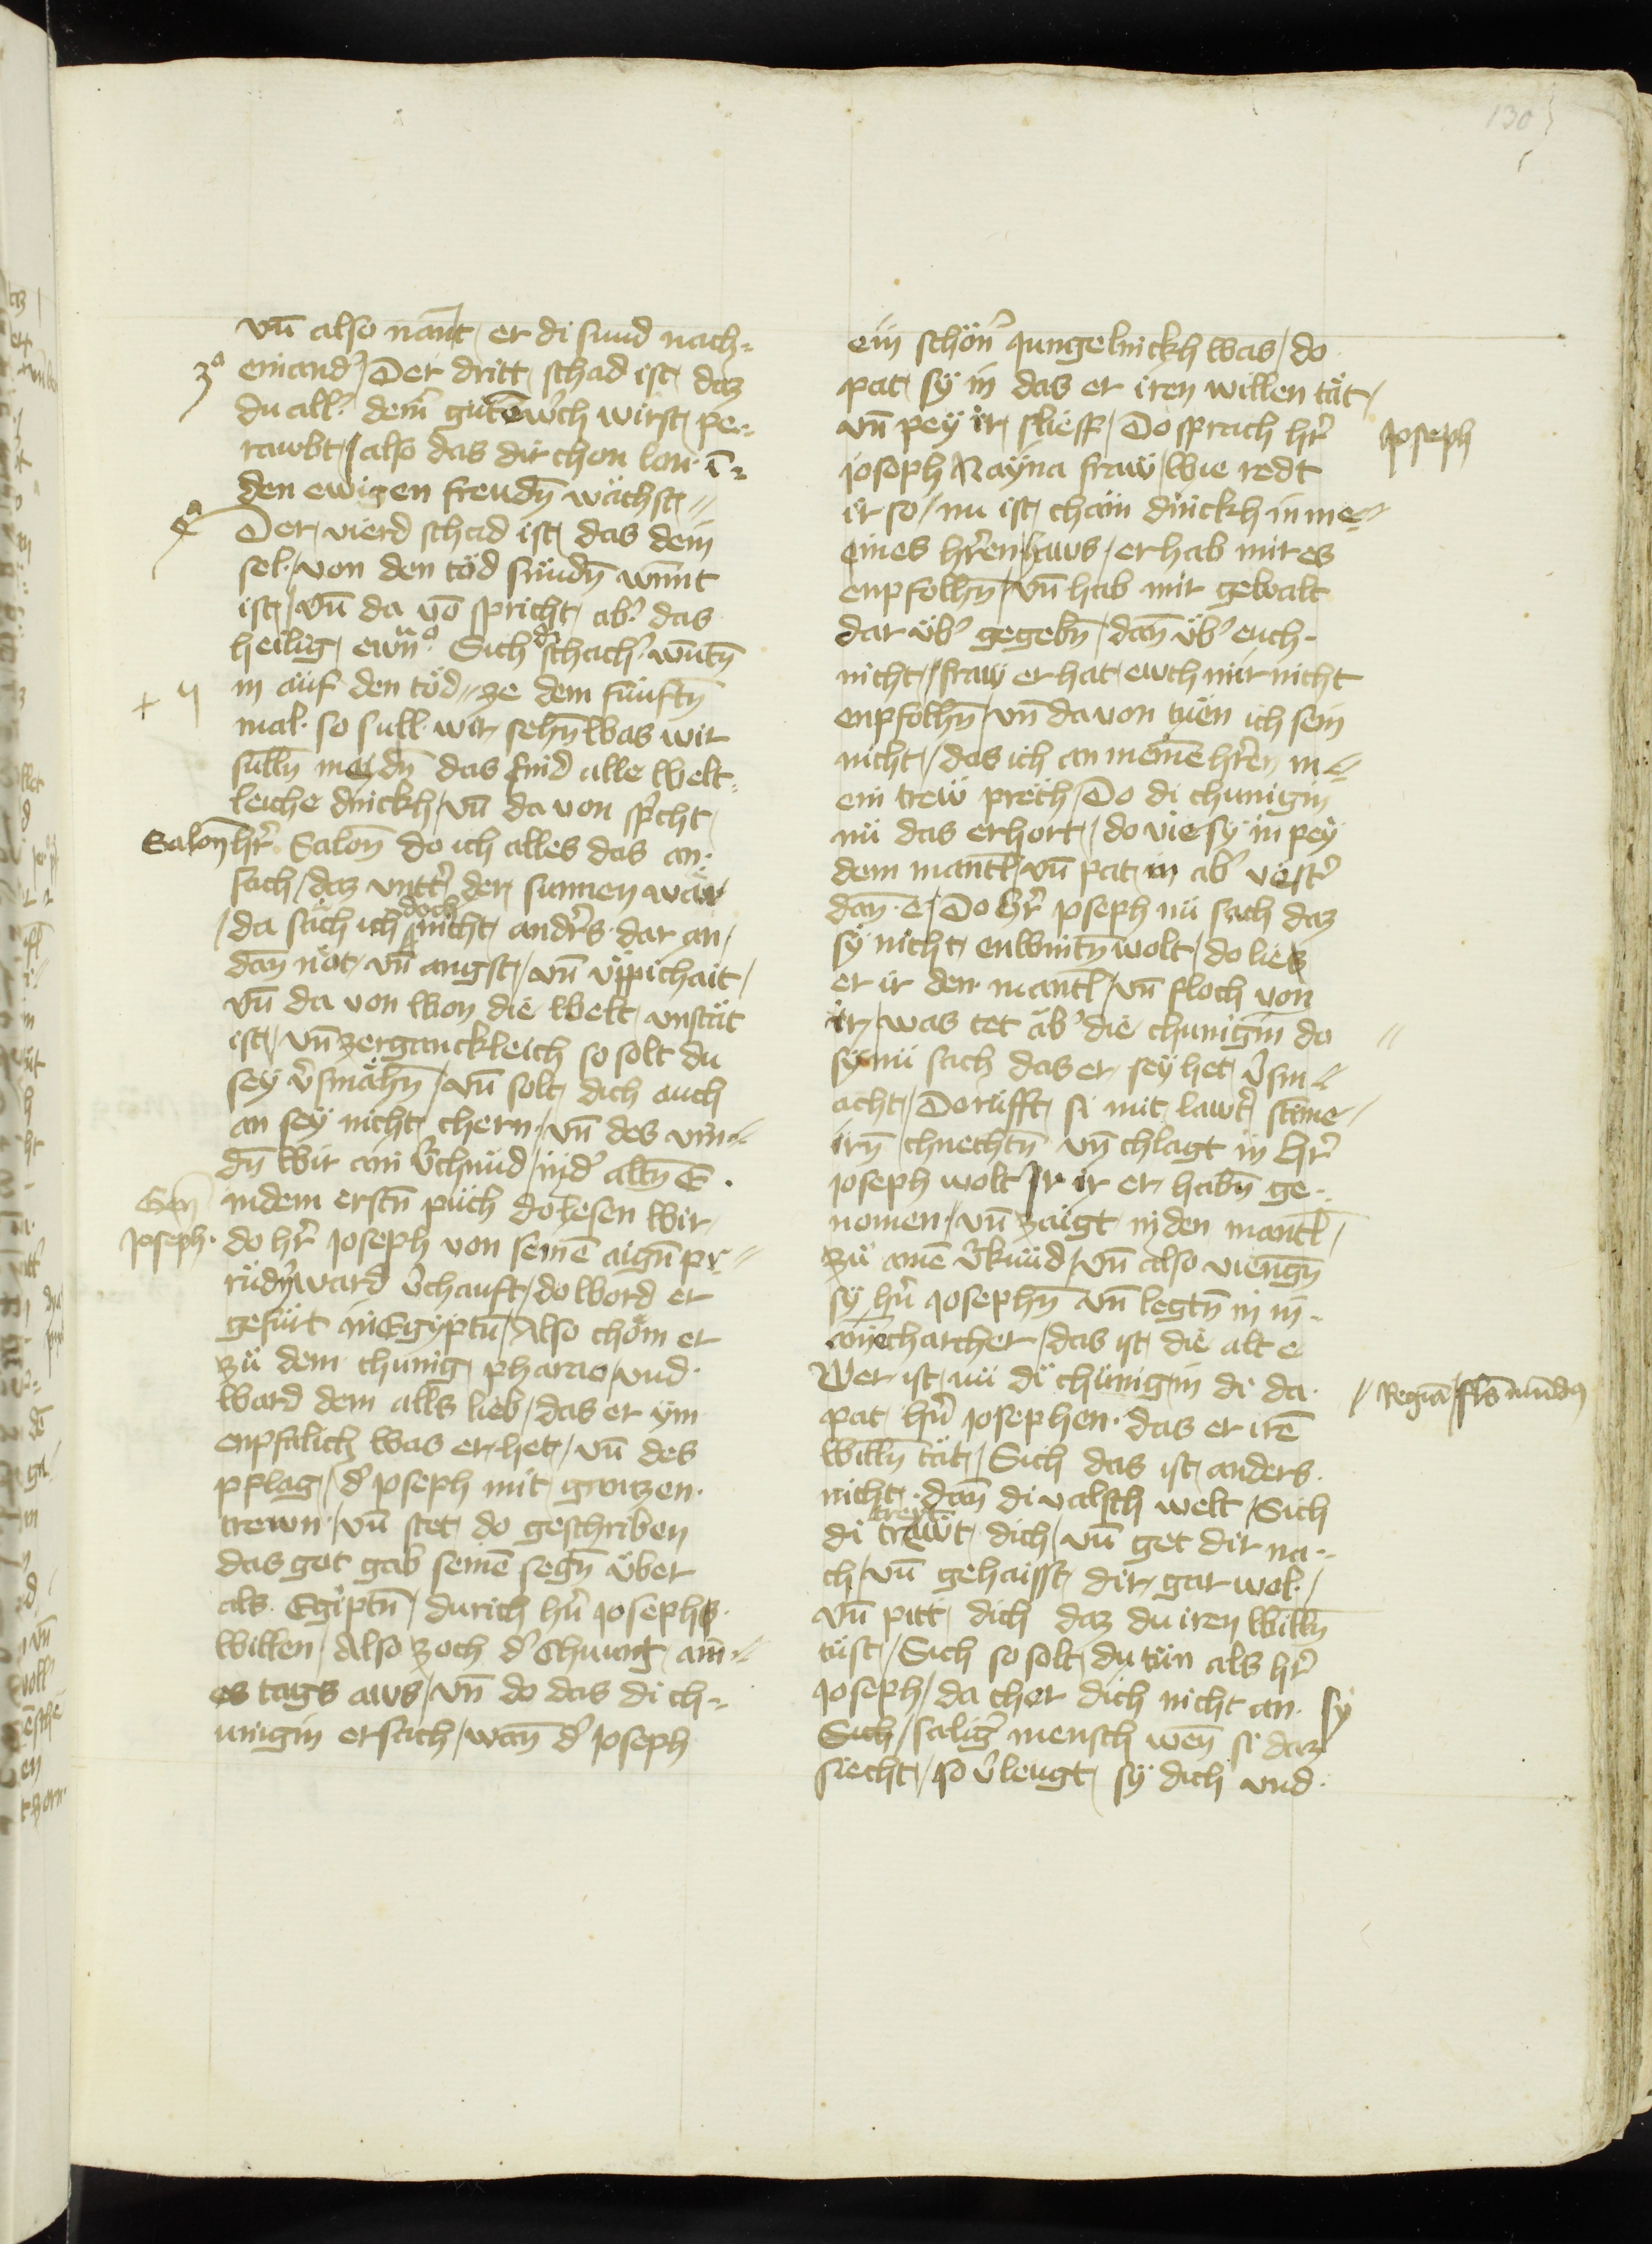 130
vn̄ also nant er di sund nach-
3ᵃ
einand̾ / Der dritt schad ist daz
du all̾ dein̄ gutē w̾ch wirst pe-
rawbt / also das dir chon lon ī-
den ewigen freudn̄ wächst //
4ᵃ
Der vierd schad ist das dein
sel von den töd sündn̄ wunt
ist / vn̄ da vō spricht ab̾ das
heilig ewn̄ᵒ. Sich d̾ schach̾ wuntn̄
+ 4
in auf den töd // ze dem fünftn̄
mal so sull wir sehn̄ was wir
sulln̄ meydn̄ das sind alle welt-
leiche dinckh / vn̄ da von sp̾cht
Salon̄
hr̄ Salon̄ do ich alles das an-
sach / daz vntt̾ der sunnen wär
/ da sach ich doch nicht andr̄s dar an /
dan̄ nöt / vn̄ angst / vn̄ üppichait /
vn̄ da von won die welt vnstät
ist / vn̄ zerganckleich so solt du
sey v̾smähn̄ / vn̄ solt dich auch
an sey nicht chern / vn̄ des vin-
dn̄ wir ain v̾chnüd / in d̾ altn̄ E.
Gen̄
in dem erstn̄ püch do lesen wir
Joseph.
do hr̄ Joseph von seinē aign̄ pr-
rüdn̄ ward v̾chauft / do ward er
gefürt in Egyptū / Also chöm er
zü dem chunig pharao / vnd
ward dem alls lieb / das er ym
enpfalich was er het / vn̄ des
pflag / d̾ Joseph mit grozzen
trewn / vn̄ stet do geschriben
das got gab seinē segn̄ über
als Egiptn̄ / durich hr̄n Josephs
willen / Also zoch d̾ chunig ain-
es tags aws / vn̄ do das di ch-
unigin ersach / wan̄ d̾ Joseph
ein schön̾ Jungelinckh was / do
pat sÿ in das er iren willen tät /
vn̄ pey ir slieff / Do sprach hr̄
Joseph
Joseph Nayna fraw / wie redt
ir so / nu ist chain dinckh in me-
eines hr̄ren haws / er hab mir es
enpfolhn̄ / vn̄ hab mir gewalt
dar üb̾ gegebn̄ / dan̄ üb̾ euch
nicht / fraw er hat ewch mir nicht
enpfolhn̄ / vn̄ da von tüen ich sein
nicht / das ich an meinē hr̄ren m-
ein trew prech / Do di chunigin
nü das erhort / do vie sy in pey
dem mantl / vn̄ pat in ab̾ vest̾
dan̄ e / Do hr̄ Joseph nü sach daz
sÿ nicht enwintn̄ wolt / do liez
er ir den mantl / vn̄ floch von
ir / was tet ab̾ die chunigin do //
sy nü sach das er sey het v̾sm-
acht / Do rüfft si mit lawt̾ stīme
irn̄ chnechtn̄ vn̄ chlagt in hr̄
Joseph wolt ir ir er habn̄ ge-
nomen / vn̄ zaigt in den mantl /
zü ainē v̾knüd / vn̄ also viengn̄
sÿ hr̄n Josephn̄ vn̄ legtn̄ in in-
ainē charcher / das ist die alt e
Wer ist nü di chünigin di da
// Regīa / fls mūndꝰ
pat hr̄n Josephen das er irē
willn̄ tät / Sich das ist anders
nicht dan̄ di valsch welt / Sich
di trewt dich / vn̄ get dir na-
ch / vn̄ gehaisst dir gar wol /
vn̄ pitt dich daz du iren willn̄
tüst / Sich so solt du tün als hr̄
Joseph / da cher dich nicht an sy
Sich / salig̾ mensch wen̄ si daz
siecht / so v̾leugt sÿ dich vnd